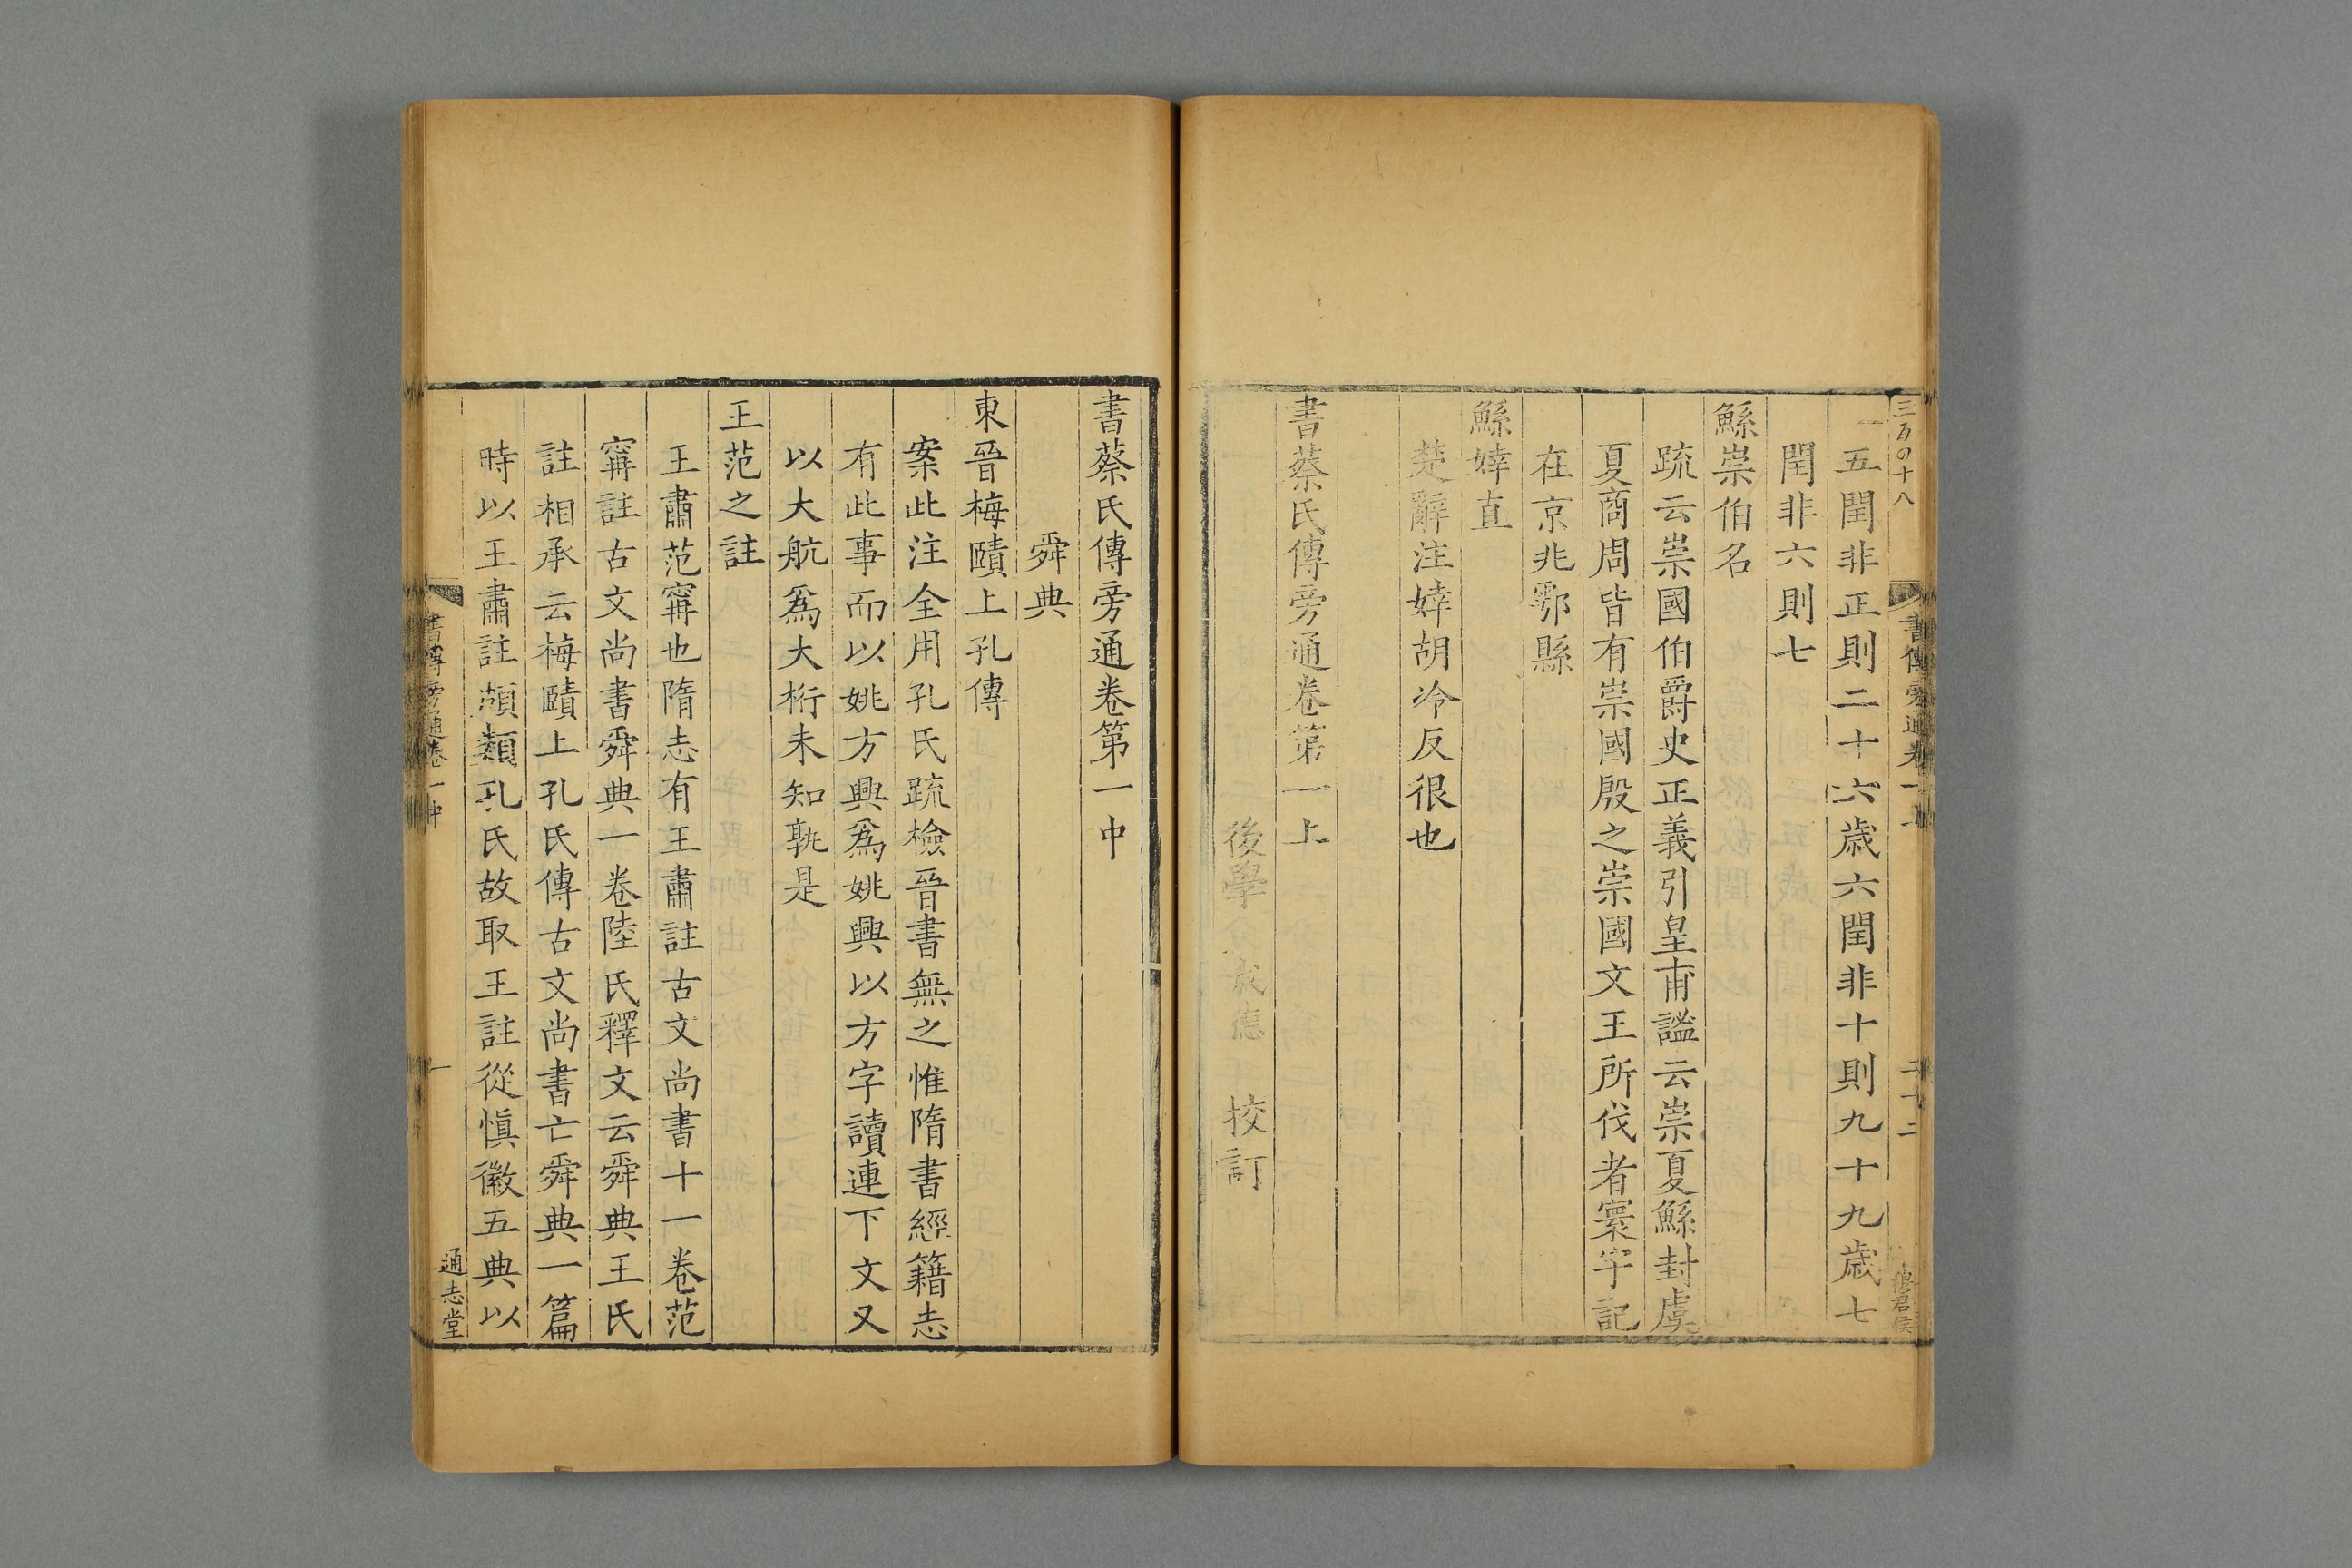 三百の十八
書傳旁通卷一上
二十二
五閏非正則二十六歲六閏非十則九十九歲七
閏非六則七
鯀崇伯名
疏云崇國伯爵史正義引皇甫謐云崇夏鯀封虞
夏商周皆有崇國殷之崇國文王所伐者寰宇記
在京兆鄠縣
鯀婞直
楚辭注婞胡冷反很也
書蔡氏傳旁通卷第一上
後學 成德 校訂
書蔡氏傳旁通卷第一中
舜典
東晉梅賾上孔傳
案此注全用孔氏疏檢晉書無之惟隋書經籍志
有此事而以姚方興爲姚興以方字讀連下文又
以大航爲大桁未知孰是
王范之註
王肅范甯也隋志有王肅註古文尚書十一卷范
甯註古文尚書舜典一卷陸氏釋文云舜典王氏
註相承云梅賾上孔氏傳古文尚書亡舜典一篇
時以王肅註頗類孔氏故取王註從愼徽五典以
書傳旁通卷一中
一
通志堂